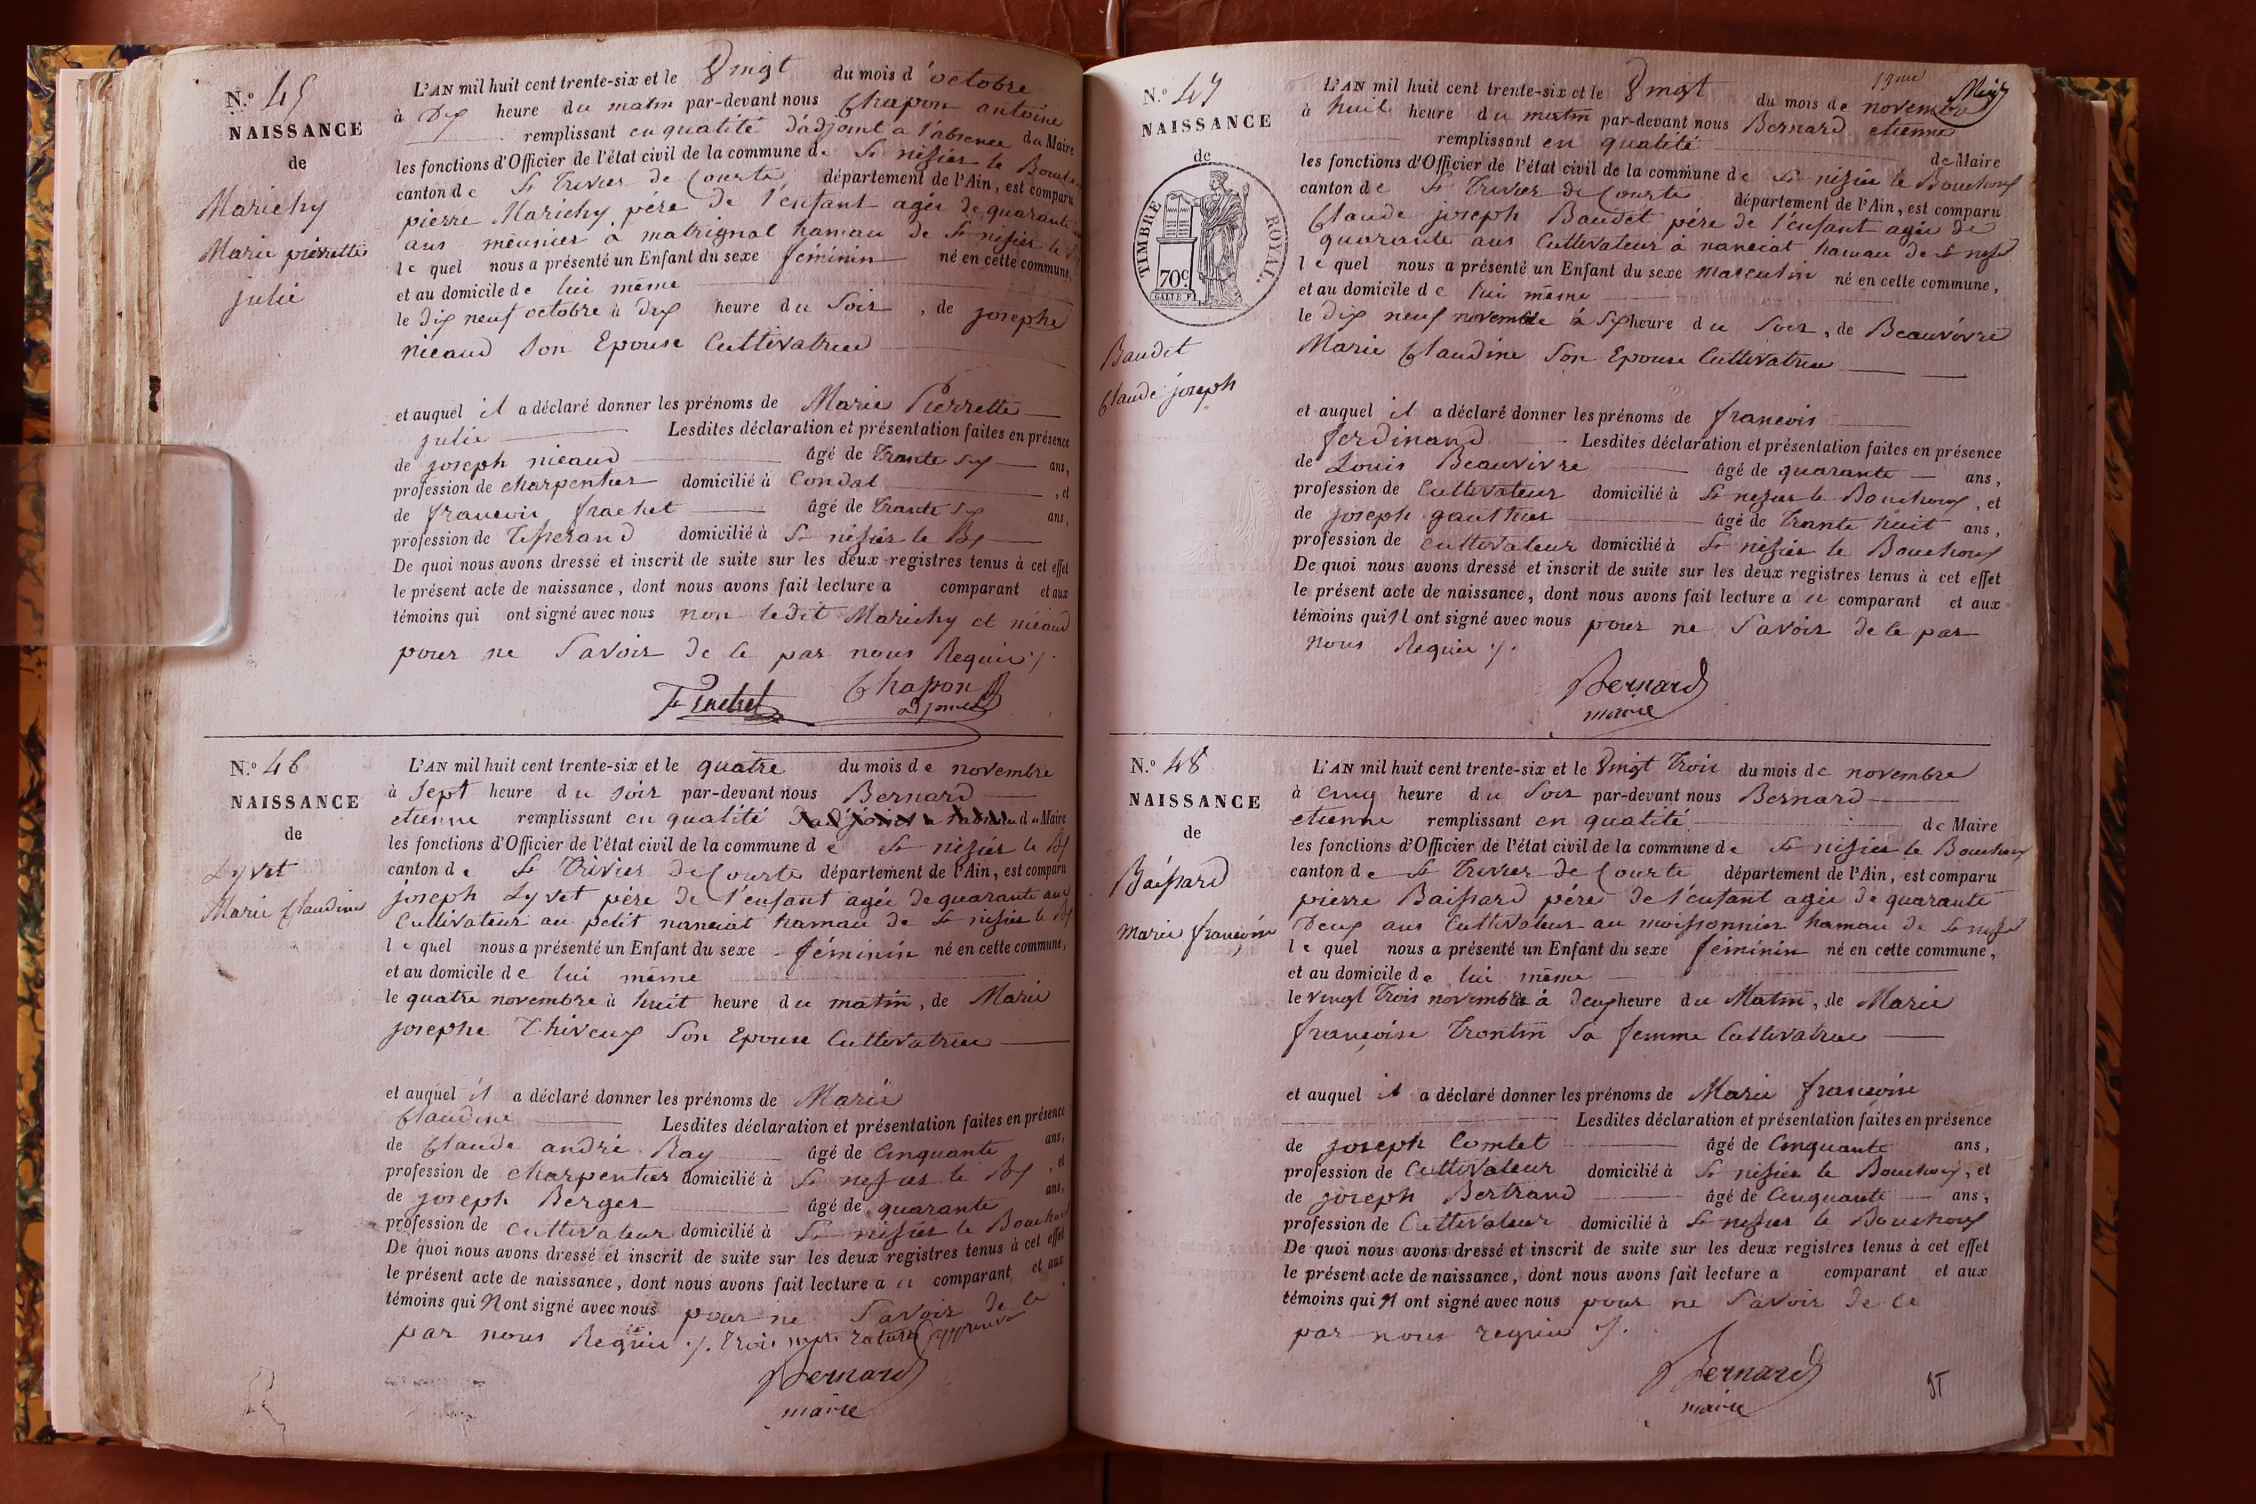 N.º 45
NAISSANCE
de
Marichy
Marie pierrette
julie
L'AN mil huit cent trente-six et le Vingt du mois d'octobre
à Dix heure du matin par-devant nous Chapon antoine
remplissant en qualité d'adjoint a l'absence du Maire
les fonctions d'Officier de l'état civil de la commune de St nisier le
canton de St Trivier de Courte département de l'Ain, est comparu
pierre Marichy père de l'enfant agée de quarante
ans meunier à matrignat hamau de St nisier le
le quel nous a présenté un Enfant du sexe féminin né en cette commune,
et au domicile de lui même
le dix neuf octobre à dix heure du Soir, de josephe
nicaud Son Epouse Cultivatrice
et auquel il a déclaré donner les prénoms de Marie Pierrette
julie Lesdites déclaration et présentation faites en présence
de joseph nicaud âgé de trante six ans,
profession de charpentier domicilié à Condal, et
de francois frachet âgé de trante six ans,
profession de Tisserand domicilié à St nisier le Bx
De quoi nous avons dressé et inscrit de suite sur les deux registres tenus à cet effet
le présent acte de naissance, dont nous avons fait lecture a comparant et aux
témoins qui ont signé avec nous non ledit Marichy et nicaud
pour ne Savoir de ce par nous Requis ./.
Frachet Chapon
adjoint
N.º 46
NAISSANCE
de
Lyvet
Marie Claudine
L'AN mil huit cent trente-six et le quatre du mois de novembre
à Sept heure du soir par-devant nous Bernard
etienne remplissant en qualité du Maire
les fonctions d'Officier de l'état civil de la commune de St nisier le Bx
canton de St Trivier de Courte département de l'Ain, est comparu
joseph Lyvet père de l'enfant agée de quarante ans
Cultivateur au petit nanciat hamau de St nisier le Bx
le quel nous a présenté un Enfant du sexe féminin né en cette commune,
et au domicile de lui même
le quatre novembre à huit heure du matin, de Marie
josephe Thiveux Son Epouse Cultivatrice
et auquel il a déclaré donner les prénoms de Marie
Claudine Lesdites déclaration et présentation faites en présence
de Claude andré Ray âgé de Cinquante ans,
profession de charpentier domicilié à St nisier le Bx, et
de joseph Berger âgé de quarante ans,
profession de cultivateur domicilié à St nisier le Bouchoux
De quoi nous avons dressé et inscrit de suite sur les deux registres tenus à cet effet
le présent acte de naissance, dont nous avons fait lecture a u comparant et aux
témoins qui n ont signé avec nous pour ne Savoir de ce
par nous Requis ./. trois mots raturés approuvé
Bernard
maire
13me
N.º 47
NAISSANCE
de
TIMBRE ROYAL.
70c.
Baudet
Claude joseph
L'AN mil huit cent trente-six et le Vingt du mois de novembre
à huit heure du matin par-devant nous Bernard etienne
remplissant en qualité de Maire
les fonctions d'Officier de l'état civil de la commune de St nisier le Bouchoux
canton de St Trivier de Courte département de l'Ain, est comparu
Claude joseph Baudet père de l'enfant agée de
quarante ans Cultivateur à nanciat hamau de St nisier
le quel nous a présenté un Enfant du sexe masculin né en cette commune,
et au domicile de lui même
le dix neuf novembre à Six heure du Soir, de Beauvivre
Marie Claudine Son Epouse Cultivatrice
et auquel il a déclaré donner les prénoms de francois
ferdinand Lesdites déclaration et présentation faites en présence
de Louis Beauvivre âgé de quarante ans,
profession de Cultivateur domicilié à St nisier le Bouchoux, et
de joseph gauthier âgé de trante huit ans,
profession de cultivateur domicilié à St nisier le Bouchoux
De quoi nous avons dressé et inscrit de suite sur les deux registres tenus à cet effet
le présent acte de naissance, dont nous avons fait lecture a u comparant et aux
témoins qui n ont signé avec nous pour ne Savoir de ce par
nous Requis ./.
Bernard
maire
N.º 48
NAISSANCE
de
Baissard
Marie françoise
L'AN mil huit cent trente-six et le Vingt Trois du mois de novembre
à cinq heure du Soir par-devant nous Bernard
etienne remplissant en qualité de Maire
les fonctions d'Officier de l'état civil de la commune de St nisier le Bouchoux
canton de St Trivier de Courte département de l'Ain, est comparu
pierre Baissard père de l'enfant agée de quarante
Deux ans Cultivateur au moissonnier hamau de St nisier
le quel nous a présenté un Enfant du sexe féminin né en cette commune,
et au domicile de lui même
le vingt Trois novembre à deux heure du Matin, de Marie
françoise Trontin Sa femme Cultivatrice
et auquel il a déclaré donner les prénoms de Marie françoise
Lesdites déclaration et présentation faites en présence
de joseph Comtet âgé de Cinquante ans,
profession de Cultivateur domicilié à St nisier le Bouchoux, et
de joseph Bertrand âgé de Cinquante ans,
profession de Cultivateur domicilié à St nisier le Bouchoux
De quoi nous avons dressé et inscrit de suite sur les deux registres tenus à cet effet
le présent acte de naissance, dont nous avons fait lecture a comparant et aux
témoins qui n ont signé avec nous pour ne Savoir de ce
par nous requis ./.
Bernard
maire